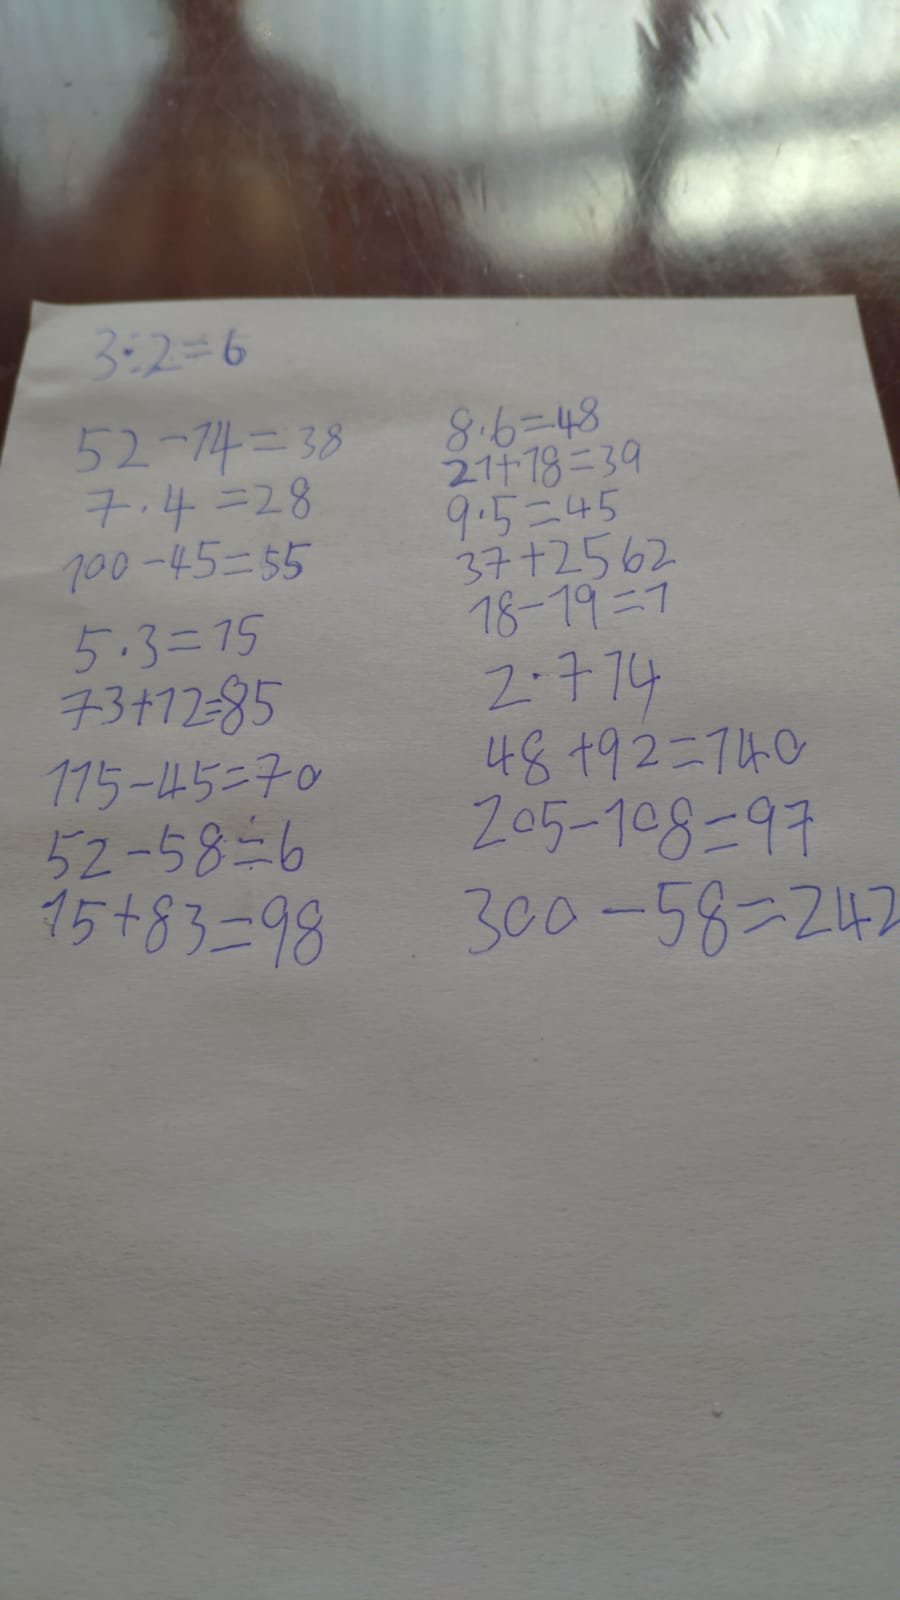 3:2=6
52-14=38
7.4=28
100-45=55
5.3=15
73+12=85
115-45=70
52-58=6
15+83=98
8.6=48
21+18=39
9.5=45
37+2562
18-19=1
2.714
48+92=140
205-108=97
300-58=242